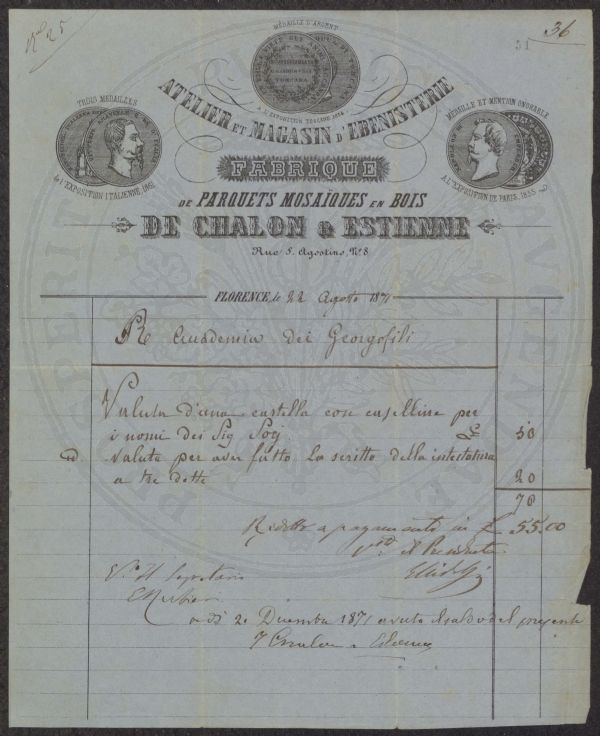 36
51
MÉDAILLE D'ARGENT
A L'EXPOSITION TOSCANE 1854
ATELIER ET MAGASIN D'EBENISTERIE
TROIS MÉDAILLES
à l'EXPOSITION ITALIENNE, 1861
MÉDAILLE ET MENTION ONORABLE
A L'EXPOSITION DE PARIS, 1855
FABRIQUE
DE PARQUETS MOSAÏQUES EN BOIS
DE CHALON & ESTIENNE
Rue S. Agostino, N.º 8
FLORENCE, le 22 Agosto 1871
R Accademia dei Georgofili
Valuta d'una cartella con caselline per
i nomi dei Sig Socj £ 50
Id valuta per aver fatto la scritto della intestatura
a tre dette 20
70
Ridotto a pagamento in £ 55.00
V.º Il Presidente
Ridolfi
V.º Il Segretario
a dì 2 Dicembre 1871 avuto il saldo del presente